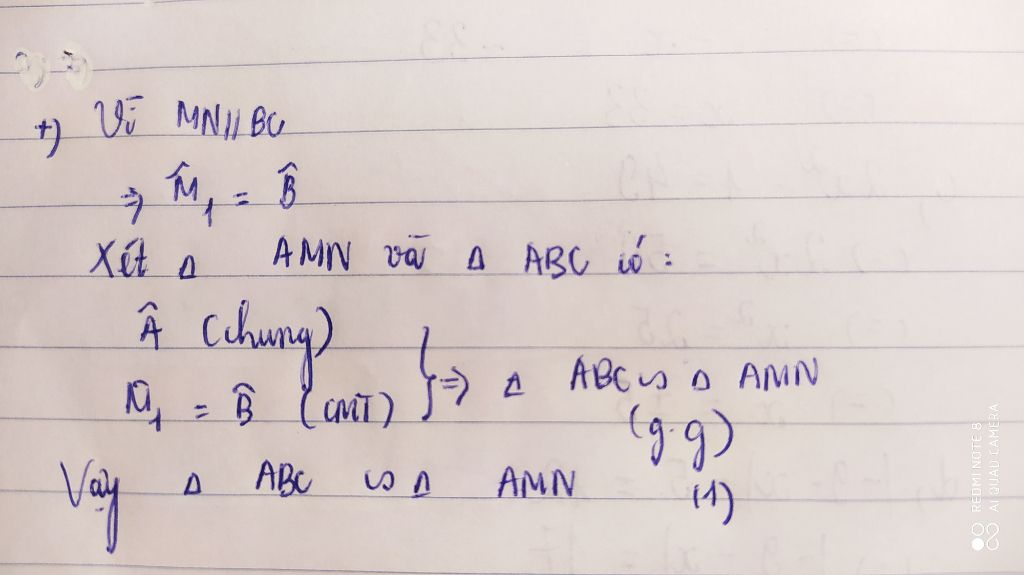 +) Vì MN//BC
⇒ M̂₁ = B̂
Xét Δ AMN và Δ ABC có:
Â (chung)
M̂₁ = B̂ (CMT) } ⇒ Δ ABC ∽ Δ AMN
(g.g)
Vậy Δ ABC ∽ Δ AMN (1)
REDMI NOTE 8
AI QUAD CAMERA